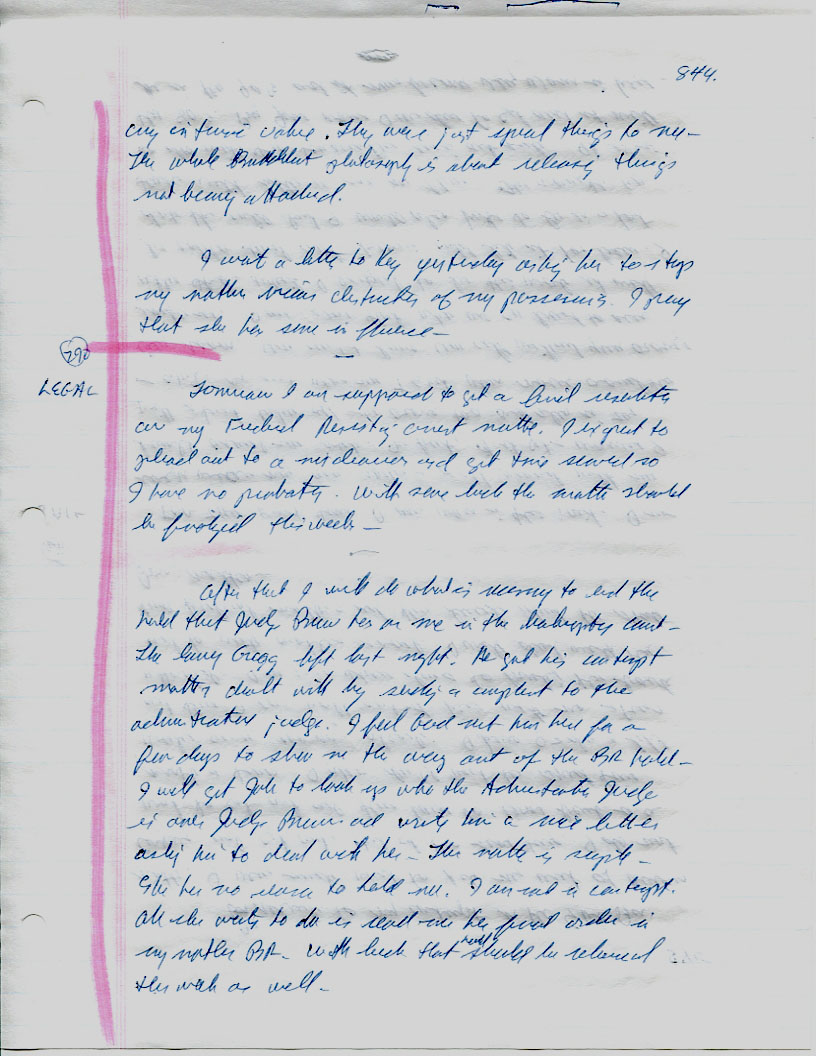 844.
any intrinsic value. They were just special things to me—
The whole Buddhist philosophy is about releasing things
not being attached.
I sent a letter to Key yesterday asking her to stop
my mother's destruction of my possessions. I pray
that she has some influence—
290
LEGAL
Tomorrow I am supposed to get a final resolution
on my Federal Resisting arrest matter. I expect to
plead out to a misdemeanor and get time served so
I have no probation. With some luck the matter should
be finalized this week—
After that I will do what is necessary to end the
hold that Judge Brown has on me in the bankruptcy court—
The Gregg left last night. He got his contempt
matter dealt with by sending a complaint to the
administrative judge. I feel God sent him here for a
few days to show me the way out of the BR hold—
I will get John to look up who the Administrative Judge
is over Judge Brown and write him a nice letter
asking him to deal with her— The matter is simple—
She has no reason to hold me. I am not in contempt.
All she wants to do is read me her final order in
my mother BR— With luck that hold should be released
this week as well—